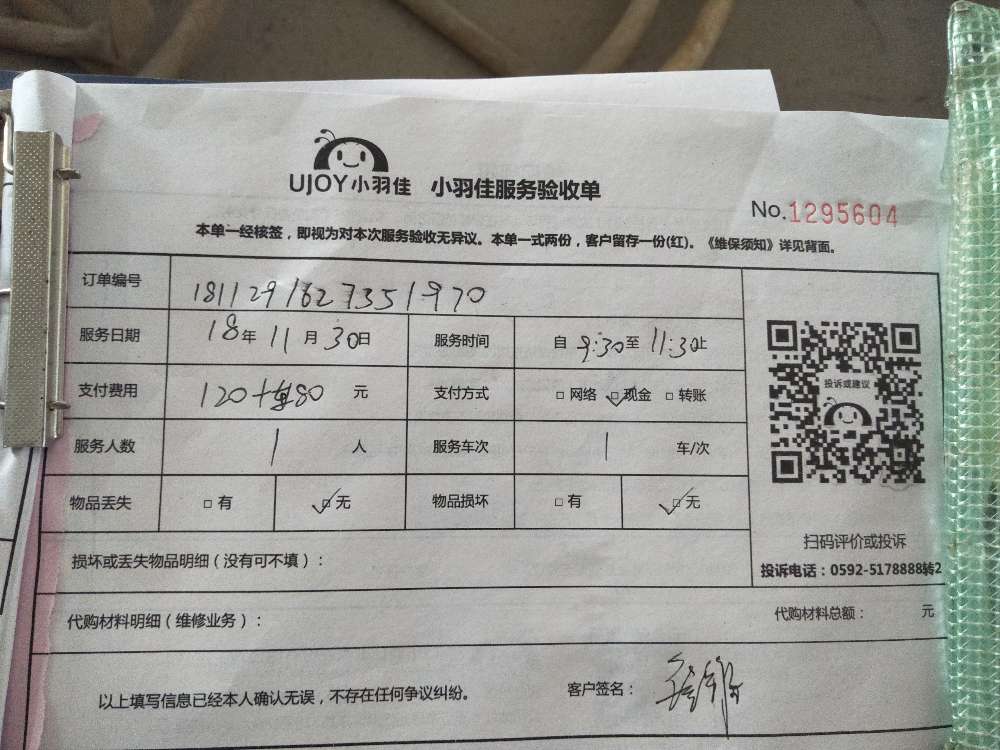 UJOY小羽佳 小羽佳服务验收单
No.1295604
本单一经核签，即视为对本次服务验收无异议。本单一式两份，客户留存一份(红)。《维保须知》详见背面。
订单编号 1811291627351970
服务日期 18年 11月 30日 服务时间 自 9:30至 11:30止
支付费用 120+80 元 支付方式 □ 网络 □ 现金 □ 转账
服务人数 1 人 服务车次 1 车/次
物品丢失 □ 有 □ 无 物品损坏 □ 有 □ 无
投诉或建议
扫码评价或投诉
投诉电话：0592-5178888转2
损坏或丢失物品明细（没有可不填）：
代购材料明细（维修业务）： 代购材料总额： 元
以上填写信息已经本人确认无误，不存在任何争议纠纷。 客户签名：